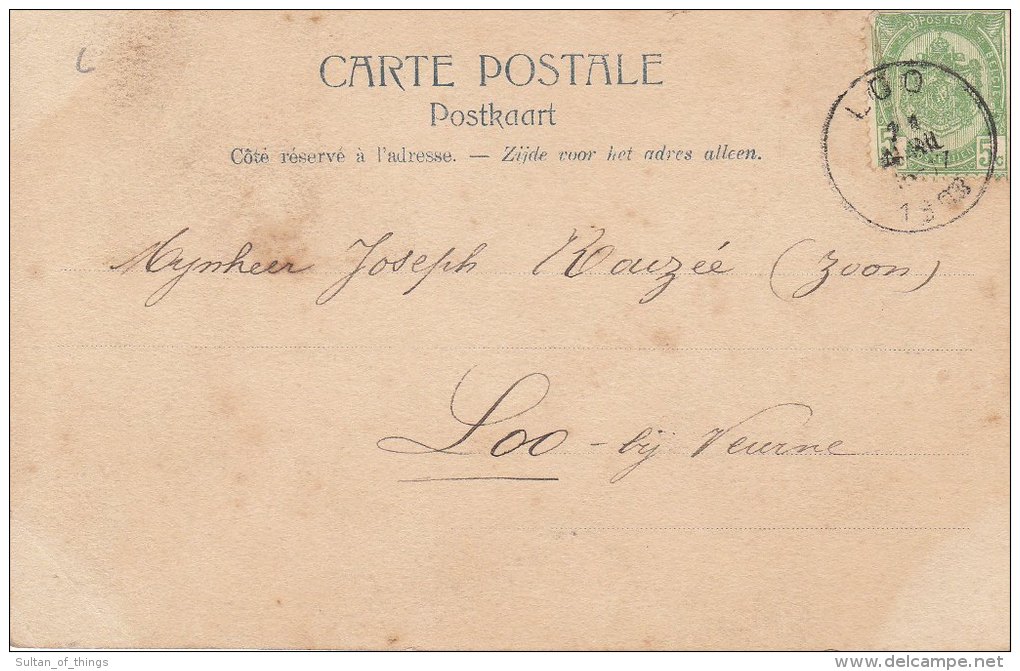 L
CARTE POSTALE
Postkaart
Côté réservé à l'adresse. — Zijde voor het adres alleen.
POSTES
BELGIQUE
5 c
LOO
Mynheer Joseph Rouzée (zoon)
Loo - bij Veurne
Sultan_of_things
delcampe.net